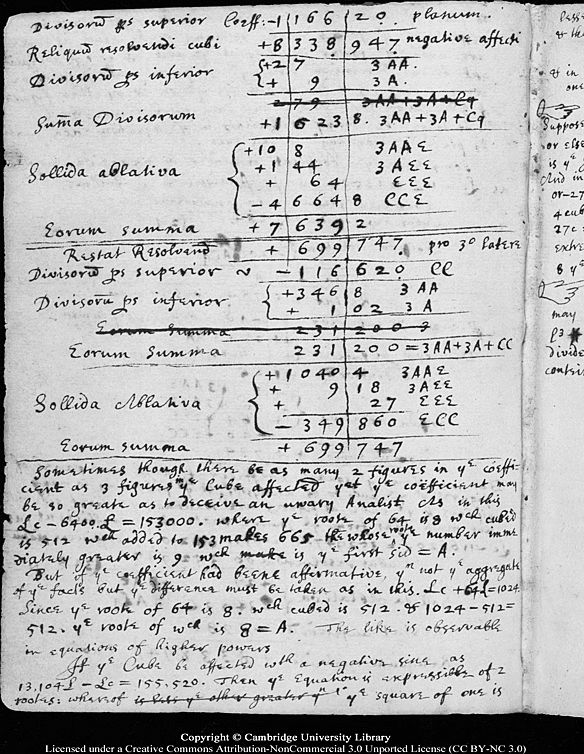 Divisorū ps superior Coeff: -1 | 166 | 20. planum.
Reliquū resolvendi cubi +8 338 947 negative affecti
Divisorū ps inferior {+2 7 3AA.
+ 9 3A.
279 3AA+3A+Cq
Suma Divisorum +1 6238. 3AA+3A+Cq
Sollida ablativa {+10 8 3AAE
+1 44 3AEE
+ 64 EEE
-4 664 8 CCE
Eorum summa +7 639 2
Restat Resolvend + 699 747. pro 3º latere
Divisorū ps superior ~ -116 620. CC
Divisorū ps inferior {+346 8 3AA
+ 1 02 3A
Eorum Summa 231 200 0
Eorum Summa 231 200=3AA+3A+CC
Sollida Ablativa {+1040 4 3AAE
+ 9 18 3AEE
+ 27 EEE
- 349 860 ECC
Eorum summa + 699 747
Sometimes though there be as many 2 figures in ye coeffi-
cient as 3 figures in ye Cube affected yet ye coefficient may
be so greate as to deceive an unwary Analist As in this
Lc -6400.L = 153000. where ye roote of 64 is 8 wch cubed
is 512 wch added to 153 makes 665 the whose roote ye number imme
diately greater is 9 wch make is ye first sid = A.
But if ye coefficient had beene affirmative, yn not ye aggregate
of ye facts but ye difference must be taken as in this. Lc + 64L=1024.
Since ye roote of 64 is 8. wch cubed is 512. & 1024-512=
512. ye roote of wch is 8=A. The like is observable
in equasions of higher powers
If ye Cube be affected wth a negative sine as
13.104L - Lc = 155.520. Then ye Equation is expressible of 2
rootes: whereof is less ye other greater yn ye square of one is
less
& th
& in
one
Suppose
or else
is ye
And in
or-27
4 cub
27c =
extre
8 ye
may
p3
divide
contei
Copyright © Cambridge University Library
Licensed under a Creative Commons Attribution-NonCommercial 3.0 Unported License (CC BY-NC 3.0)